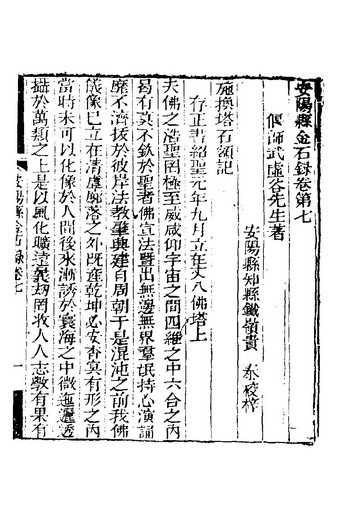 安陽縣金石録卷第七
偃師武虛谷先生著
安陽縣知縣鐵嶺貴 泰校梓
施換塔石領記
存正書紹聖元年九月立在丈八佛塔上
夫佛之浩聖罔極至威咸仰宇宙之間四維之中六合之內
曷有莫不欽於聖者佛宣法曁出無邊無界羣氓持心演誦
靡不濟拔於彼岸法教肇興建自周朝于是混沌之前我佛
儀像已立在清虛廓落之外旣逢乾坤必安杳莫有形之內
當時未可以化像於人間後來漸誘於寰海之中微迤邐透
搤於萬類之上是以風化曠遠義劫罔救人人志敎有果有
安陽縣金石録卷七
一